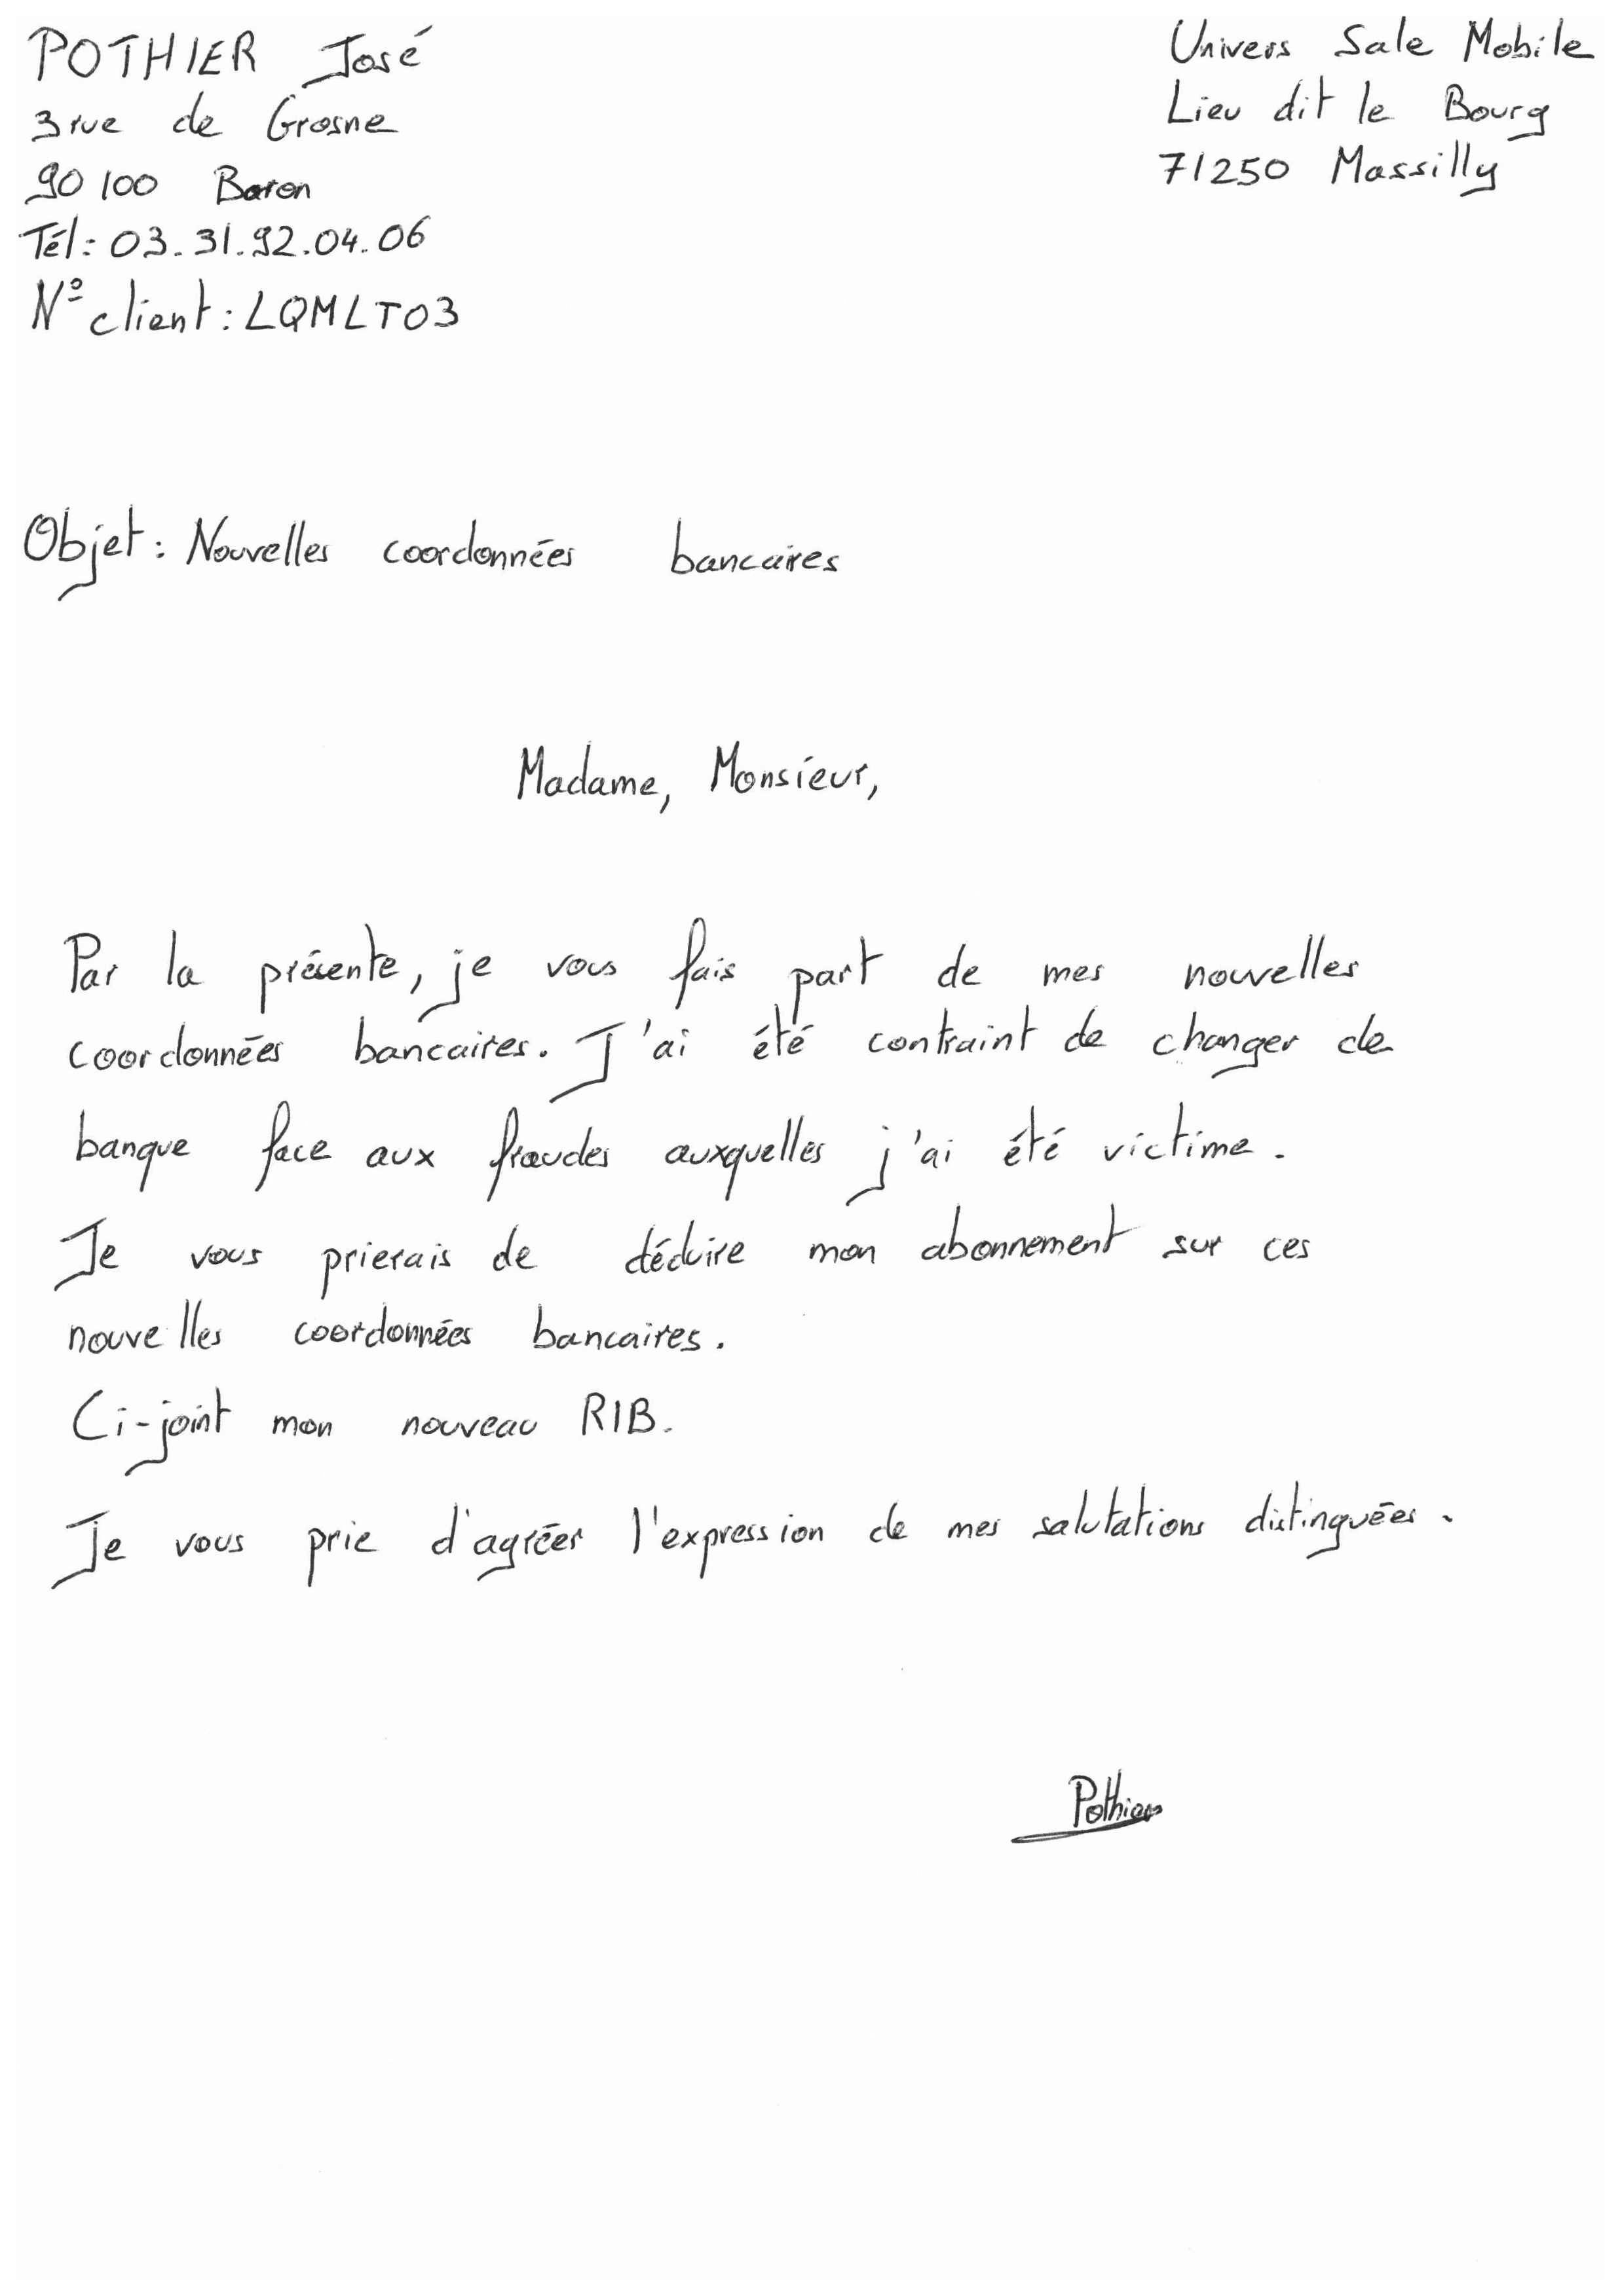 POTHIER José
3 rue de Grosne
90100 Baron
Tél : 03.31.92.04.06
N° client : LQMLT03
Univers Sale Mobile
Lieu dit le Bourg
71250 Massilly
Objet : Nouvelles coordonnées bancaires
Madame, Monsieur,
Par la présente, je vous fais part de mes nouvelles
coordonnées bancaires. J'ai été contraint de changer de
banque face aux fraudes auxquelles j'ai été victime.
Je vous prierais de déduire mon abonnement sur ces
nouvelles coordonnées bancaires.
Ci-joint mon nouveau RIB.
Je vous prie d'agréer l'expression de mes salutations distinguées.
Pothier